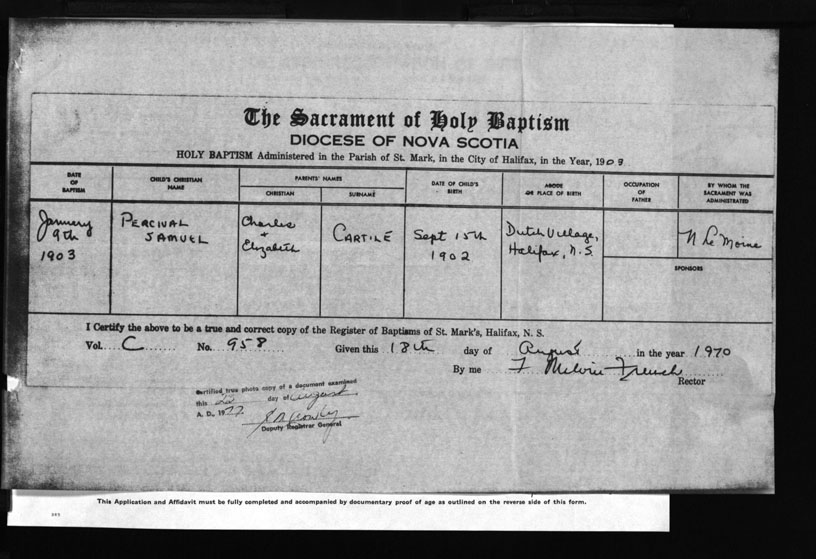 The Sacrament of Holy Baptism
DIOCESE OF NOVA SCOTIA
HOLY BAPTISM Administered in the Parish of St. Mark, in the City of Halifax, in the Year, 1903
DATE OF BAPTISM
CHILD'S CHRISTIAN NAME
PARENTS' NAMES
CHRISTIAN
SURNAME
DATE OF CHILD'S BIRTH
ABODE OR PLACE OF BIRTH
OCCUPATION OF FATHER
BY WHOM THE SACRAMENT WAS ADMINISTERED
January 9th 1903
PERCIVAL SAMUEL
Charles + Elizabeth
CARTILE
Sept 15th 1902
Dutch Village, Halifax, N.S.
N Le Moine
SPONSORS
I Certify the above to be a true and correct copy of the Register of Baptisms of St. Mark's, Halifax, N. S.
Vol. C No. 958 Given this 18th day of August in the year 1970
By me F Melvin French
Rector
Certified true photo copy of a document examined
this day of August
A. D., 19
Deputy Registrar General
This Application and Affidavit must be fully completed and accompanied by documentary proof of age as outlined on the reverse side of this form.